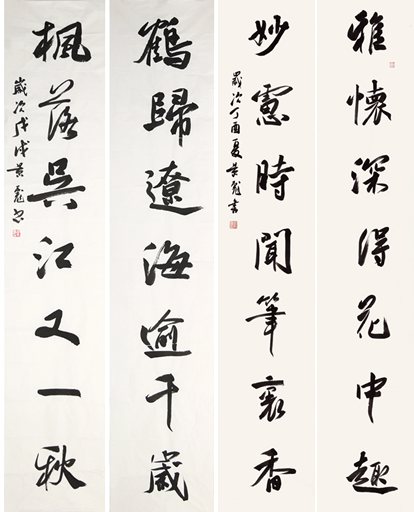 雅懷深得花中趣
妙慮時聞筆裏香
歲次丁酉夏黄書
鶴歸遼海逾千歲
楓落吳江又一秋
歲次戊戌黄